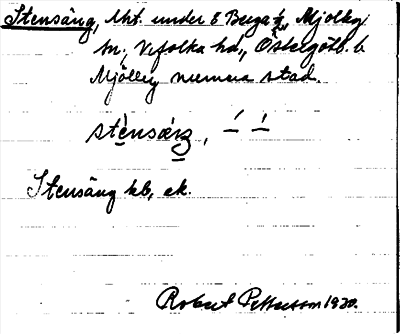 Stensäng, lht. under E Berga ½, Mjölby
sn., Vifolka hd., Östergötl. l.
Mjölby numera stad.
stènsäng,
Stensäng kb, ek.
Robert Pettersson 1920.